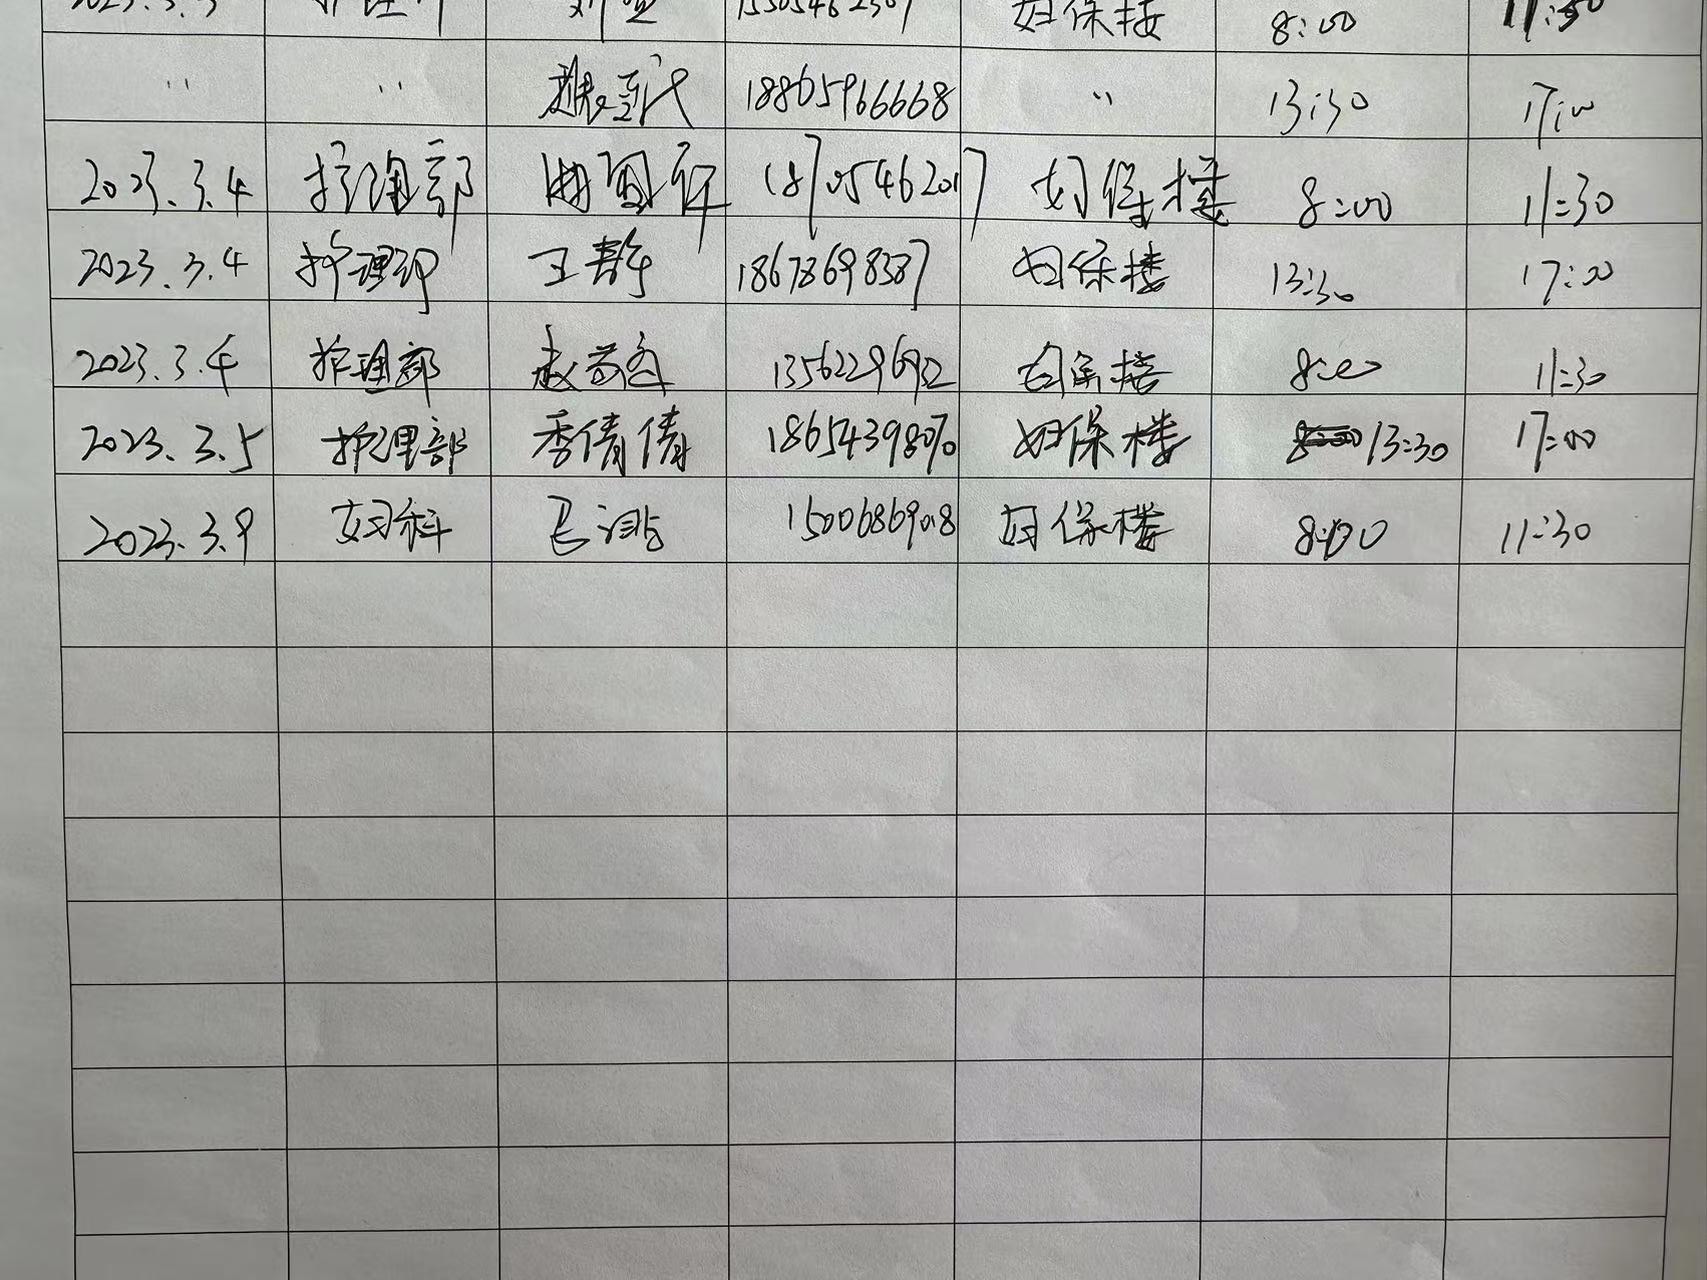 妇保楼 8:00 11:30
" " 18865966668 " 13:30 17:00
2023.3.4 护理部 18705462017 妇保楼 8:00 11:30
2023.3.4 护理部 王静 18678698387 妇保楼 13:30 17:00
2023.3.4 护理部 13562296932 妇保楼 8:00 11:30
2023.3.5 护理部 季倩倩 18654398070 妇保楼 13:30 17:00
2023.3.9 妇科 15006869018 妇保楼 8:00 11:30